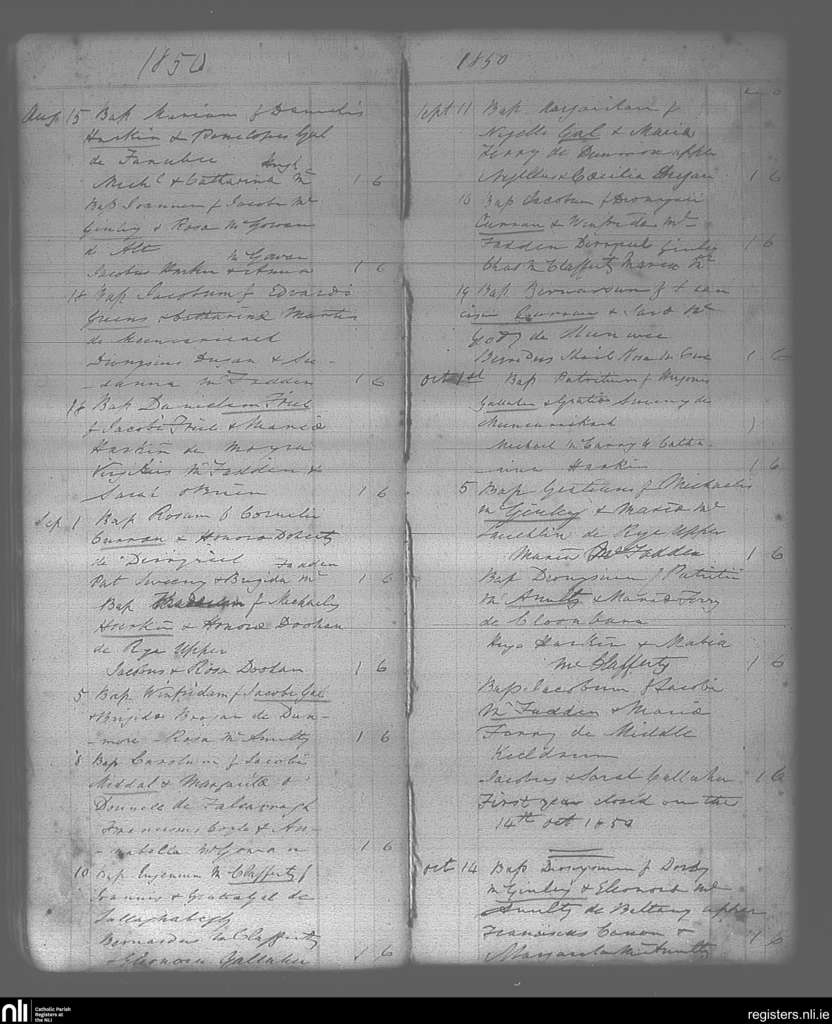 1850
Aug 15 Bap Mariam f Danielis
Harkin & Penelopes Gal
de Fanabu
Hugh
Michl & Catharina Mc 1 6
Bap Joannem f Jacobi Mc
Ginley & Rosa McGowan
de Alt
McGowan
Jacobus Harkin & Anna 1 6
18 Bap Jacobum f Edvardi
Greens & Catharina Martin
de
Dionysius Dugan & Su-
-sanna McFadden 1 6
18 Bap Danielem Friel
f Jacobi Friel & Maria
Harkin de Moyra
Virginius McFadden &
Sarai OBrien 1 6
Sep 1 Bap Rosam f Cornelii
Curran & Honora Doherty
de Dirriqueel
Fadden
Pat Sweeny & Brigida Mc 1 6
Bap f Michaelis
Harkin & Honora Doohan
de Rye Upper
Jacobus & Rosa Doohan 1 6
5 Bap Winfridam f Jacobi Gal
& Brigida de Dun-
-more Rosa McAnulty 1 6
8 Bap Carolum f Jacobi
Meddal & Margarita O
Donnell de Falcarragh
Franciscus Coyle & An-
-nabella McGowan 1 6
10 Bap Eugenium McClafferty f
Joannis & Gal de
Ballaghabegly
Bernardus McClafferty
& Eleonora Gallaher 1 6
1850
Sept 11 Bap Margaritam f
Nigelli Gal & Maria
Ferry de Dunmore upper
Nigellus & Caecilia Dugan 1 6
16 Bap Jacobum f Dionysii
Curran & Winfrida Mc-
Fadden Dirriqueel Ginley 1 6
Chas McClafferty Maria Mc
19 Bap Bernardum f Fran
cisci Curran & Sara Mc
de
Rosa 1 6
Oct 1st Bap Patritium f Hugonis
Gallaher & Gratia Sweeny de
Michael McGarvy & Catha-
-rina Harkin 1 6
5 Bap f Michaelis
McGinley & Maria Mc
de Rye Upper
Maria McFadden 1 6
Bap Dionysium f Patritii
Mc Anulty & Maria Ferry
de Cloonbara
Hugo Harkin & Maria
McClafferty 1 6
Bap Jacobum f Jacobi
McFadden & Maria
Ferry de Middle
Keeldrum
Jacobus & Sarah Gallaher 1 6
First year closed on the
14th Oct 1850
Oct 14 Bap Dionysium f Dordy
McGinley & Eleonora Mc
Anulty de Beltany upper
Franciscus Canon & 1 6
Margarita McAnulty
nli Catholic Parish
Registers at
the NLI
registers.nli.ie